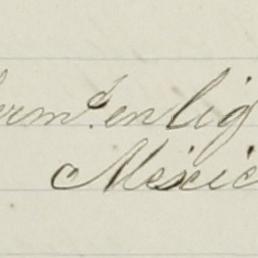 erm.^s en lig
Mexic